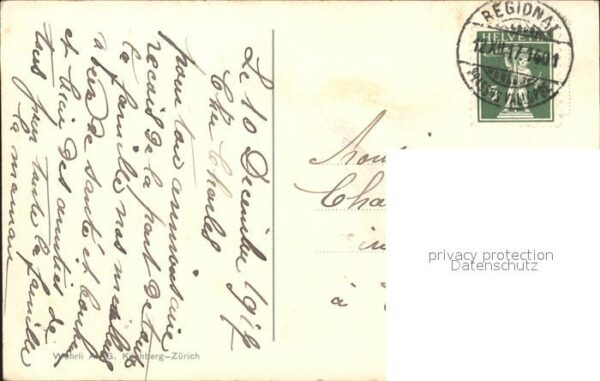 Le 10 Décembre 1917
Cher Charles
pour ton anniversaire
reçois de la part de toute
la famille nos meilleurs
vœux de santé et bonheur
et bien des amitiés de
tous pour toute la famille
ta maman
Wehrli A.-G. Kilchberg-Zürich
REGIONAL
12.XII.17.1601
HELVETIA
Monsieur
Cha
à
privacy protection
Datenschutz